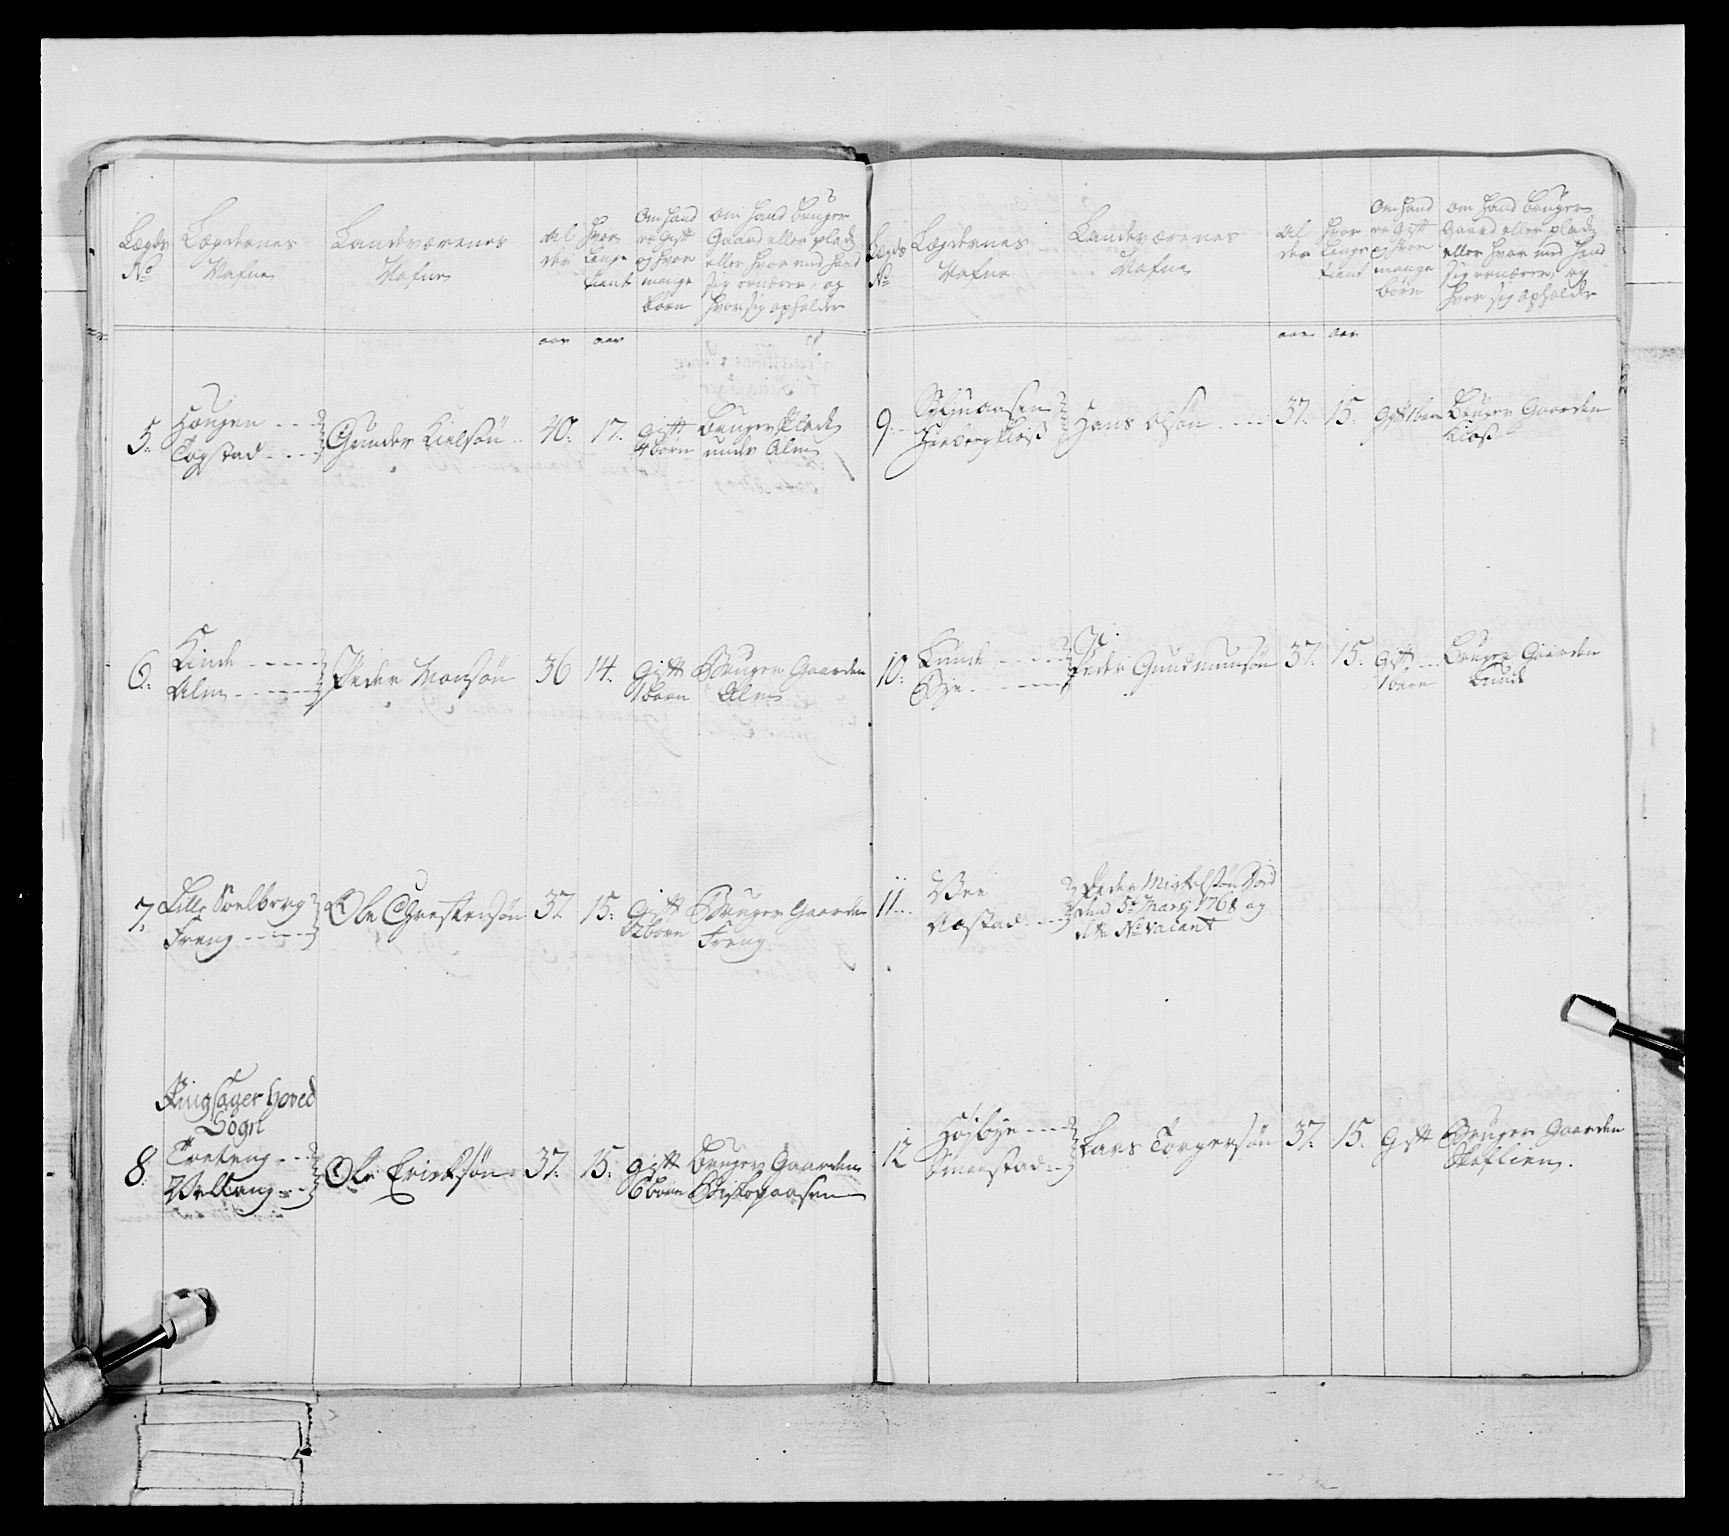 Lægds
No
Lægdernes
Nafne
Landeværenes
Nafne
Al
der
hvor
Længe
tient
Om hand
er Gift
og hvor
mange
börn
Om hand bruger
Gaard eller plads
eller hvor med hand
sig ernærer, og
hvor sig opholder
aar
aar
5.
Haugen
Togstad
Gunder Kielsøn
40.
17.
Gift
4 børn
Bruger Plads
under Alm
6.
Kinde
Alm
Peder Monsøn
36
14.
Gift
1 barn
Bruger Gaarden
Alm
7.
Lille Soelberg
Freng
Ole Christensøn
37
15.
Gift
2 børn
Bruger Gaarden
Freng
Ringsager hoved
Sogn
8.
Treteng
Veltang
Ole Ericksøn
37.
15.
Gift
6 børn
Bruger Gaarden
Biskopaasen
Lægds
No
Lægdernes
Nafne
Landeværenes
Nafne
Al
der
hvor
Længe
tient
Om hand
er Gift
og hvor
mange
börn
Om hand bruger
Gaard eller plads
eller hvor med hand
sig ernærer, og
hvor sig opholder
aar
aar
9.
Hans Olsøn
37.
15.
Gift 1 barn
Bruger Gaarden
Kloss
10.
Lunde
Bye
Peder Gudmunsøn
37.
15.
Gift
1 barn
Bruger Gaarden
Lunde
11.
Vee
Aastad
Peder Mickelsøn Død
dend 5te Martj 1768 og
No vacant
12
Højbye
Smestad
Lars Torgersøn
37.
15.
Gift
Bruger Gaarden